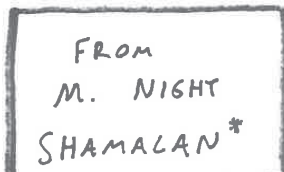 FROM
M. NIGHT
SHAMALAN*